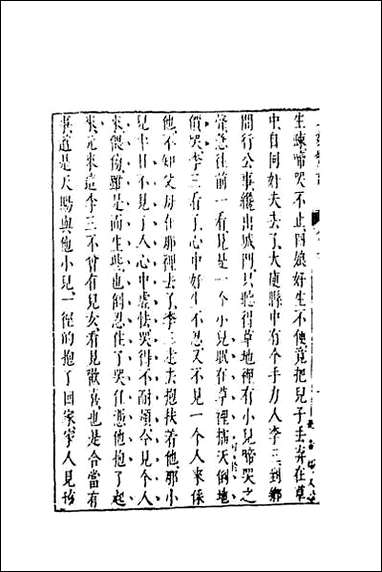 生疎啼哭不止因娘好生不便竟把兒子丟弃在草
中自同奸夫去了大庾縣中有个手力人李三到鄉
間行公事纔出城門只聽得草地裡有小兒啼哭之
聲急往前一看見是一个小兒眠在草裡擂天倒地
價哭李三看了心中好生不忍又不見一个人來倸
他不知父母在那裡去了李三走去抱扶着他那小
兒半日不見了人心中虛怯哭得不耐煩今見个人
來偎傍雖是面生些也倒忍住了哭任憑他抱了起
來元來這李三不曾有兒女看見歡喜也是合當有
事道是天賜與他小兒一徑的抱了回家家人見孩